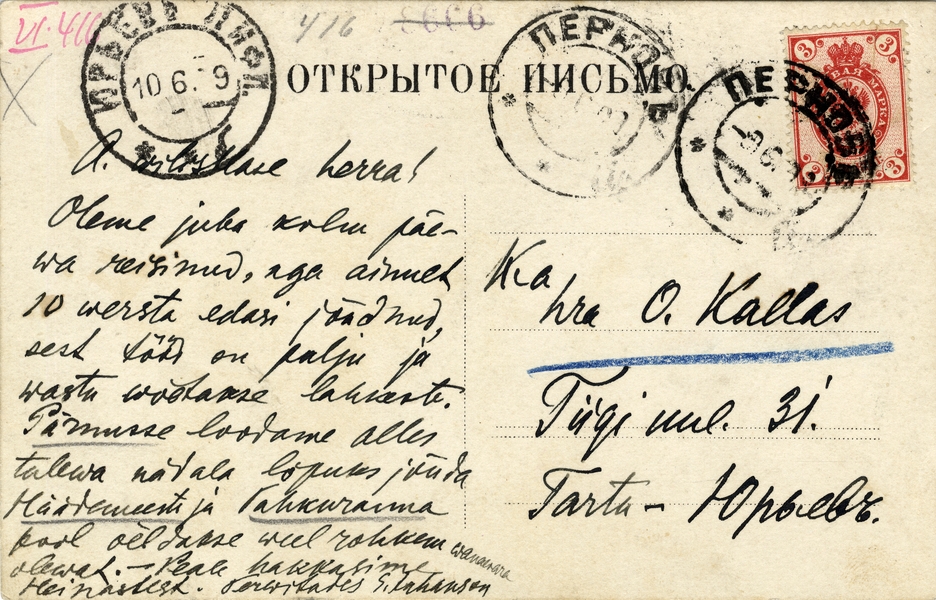 VI. 4/16
4/16
ЮРЬЕВЪ ЛИФЛ.
10 6. 9
ОТКРЫТОЕ ПИСЬМО.
ПЕРНОВЪ
ПЕРНОВЪ
3 3
МАРКА
3 3
A. herra!
Oleme juba kolm päe-
wa reisinud, aga ainult
10 wersta edasi jõudnud,
sest tööd on palju ja
wastu wõetakse lahkeste.
Pärnusse loodame alles
tulewa nädala lõpuks jõuda
Häädemeeste ja Tahkuranna
pool öeldakse weel rohkem wanawara
olewat. – Peale hakkasime
Heinastest. Terwitades
Kka
hra O. Kallas
Tiigi uul. 31.
Tartu – Юрьевъ.